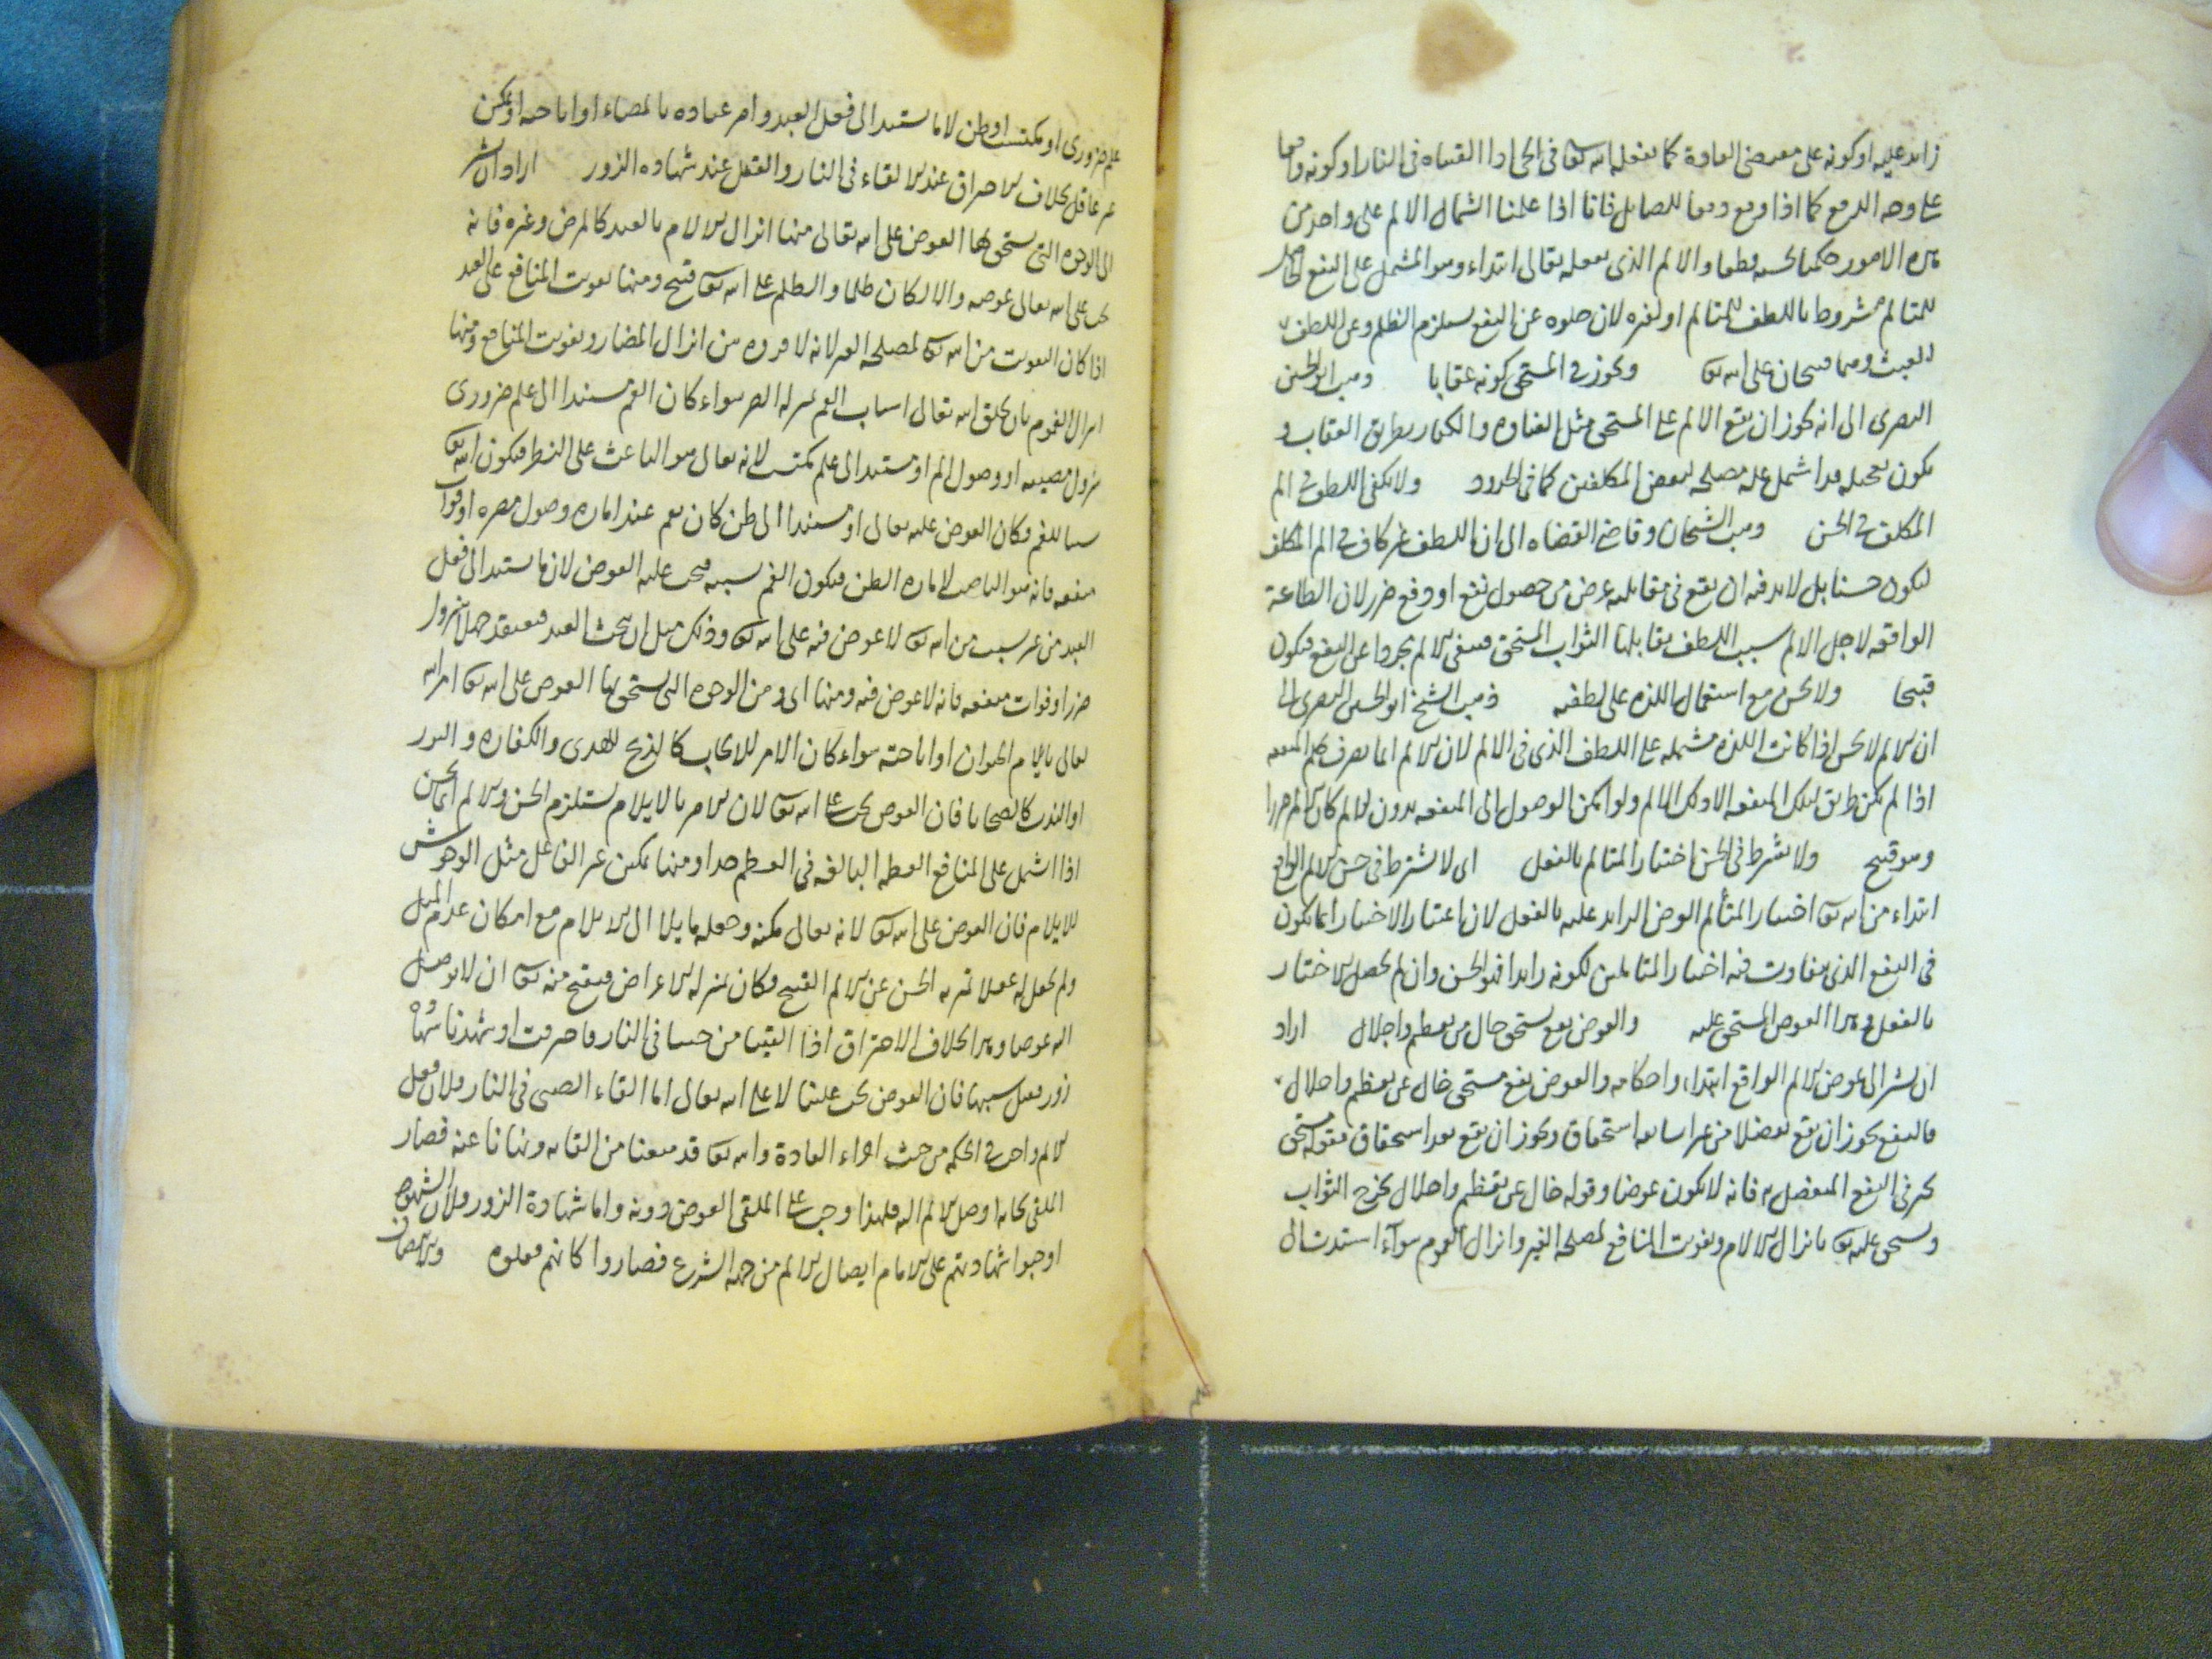 زايد عليه او كونه على مقتضى العادة كما يفعله الله تعا فى الحى اذا القيناه فى النار او كونه واقعا
على وجه الدفع كما اذا وقع دفعا للصايل فانا اذا علمنا اشتمال الالم على واحد من
هذه الامور حكمنا بحسنه قطعا والالم الذى يفعله تعالى ابتداء وهو المشتمل على النفع الحاصل
للمتالم مشروط باللطف للمتالم او لغيره لان خلوه عن النفع يستلزم الظلم وعن اللطف
العبث وهما قبيحان على الله تعا ويجوز فى المستحق كونه عقابا ذهب ابو الحسين
البصرى الى انه يجوز ان يقع الالم على المستحق مثل الفساق والكفار بطريق العقاب و
يكون تعجيله قد اشتمل على مصلحة لبعض المكلفين كما فى الحدود ولا يكفى اللطف فى الم
المكلف فى الحسن ذهب الشيخان وقاضى القضاه الى ان اللطف غير كاف فى الم المكلف
ليكون حسنا بل لابد فيه ان يقع فى مقابلته عوض من حصول نفع او دفع ضرر لان الطاعة
الواقعه لاجل الالم بسبب اللطف يقابلها الثواب المستحق فيبقى الالم مجردا عن النفع فيكون
قبيحا ولا يحسن مع اشتمال اللذه على لطفيته ذهب الشيخ ابو الحسين البصرى الى
ان الالم لا يحسن اذا كانت اللذه مشتمله على اللطف الذى فى الالم لان الالم انما يصرف حكم المنفعه
اذا لم يكن طريق لتلك المنفعه الا ذلك الالم ولو امكن الوصول الى المنفعه بدون الالم كان الالم ضررا
وهو قبيح ولا يشترط فى الحسن اختيار المتالم بالفعل اى لا يشترط فى حسن الالم الواقع
ابتداء من الله تعا اختيار المتألم العوض الزايد عليه بالفعل لان اعتبار الاختيار انما يكون
فى النفع الذى يتفاوت فيه اختيار المتالمين لكونه زايدا فهو الحسن وان لم يحصل الاختيار
بالفعل وهذا العوض المستحق عليه والعوض نفع مستحق خال من تعظيم واجلال اراد
ان يشير الى عوض الالم الواقع ابتداء واحكامه والعوض نفع مستحق خال عن تعظيم واجلال
فالنفع يجوز ان يقع تفضلا من غير سابقه استحقاق ويجوز ان يقع بعد استحقاق فقوله مستحق
يخرج النفع المتفضل به فانه لا يكون عوضا وقوله خال عن تعظيم واجلال يخرج الثواب
ويستحق عليه تعا بانزال الالام وتفويت المنافع لمصلحة الغير وانزال الغموم سواء استندت الى
علم ضرورى او مكتسب او ظن لا ما يستند الى فعل العبد وامر عباده بالمضاء او اباحته او تمكين
غير عاقل بخلاف الاحراق عند الالقاء فى النار والقتل عند شهاده الزور اراد ان يشير
الى الوجوه التى يستحق بها العوض على الله تعالى منها انزال الالام بالعبد كالمرض وغيره فانه
يجب على الله تعالى عوضه والا لكان ظلما والظلم على الله تعا قبيح ومنها تفويت المنافع على العبد
اذا كان التفويت من الله تعا لمصلحة الغير لانه لا فرق بين انزال المضار وتفويت المنافع ومنها
انزال الغموم بان يخلق الله تعالى اسباب الغم سواء كان الغم مستندا الى علم ضرورى
بنزول مصيبه او وصول الم او مستندا الى علم مكتسب لانه تعالى هو الباعث على النظر فيكون الله تعا
سببا للغم فكان العوض عليه تعالى او مستندا الى ظن كان يغم عند اماره وصول مضره او فوات
منفعه فانه هو الناصب لاماره الظن فيكون الغم بسببه فيجب عليه العوض لان ما يستند الى فعل
العبد من غير سبب من الله تعا لا عوض فيه على الله تعا وذلك مثل ان يبحث العبد فيعتقد جهلا بنزول
ضرر او فوات منفعه فانه لا عوض فيه ومنها اى ومن الوجوه التى يستحق بها العوض على الله تعا امر الله
تعالى بايلام الحيوان او اباحته سواء كان الامر للايجاب كالذبح للهدى والكفاره والنذر
او الندب كالضحايا فان العوض يجب على الله تعا لان الامر بالايلام يستلزم الحسن والالم انما يحسن
اذا اشتمل على المنافع العظيمه البالغه فى العظم جدا ومنها تمكين غير العاقل مثل الوحوش
للايلام فان العوض على الله تعا لانه تعالى مكنه وجعله مايلا الى الايلام مع امكان عدم الميل
ولم يجعل له عقلا يميز به الحسن عن الالم القبيح فكان بمنزله الاغراض فيقبح منه تعا ان لا يوصل
اليه عوضا وهذا بخلاف الاحتراق اذا القينا من حسا فى النار فاحترقت او شهدنا شهاده
زور بقتل بسببها فان العوض يجب علينا لا على الله تعالى اما القاء الصبى فى النار فلان فعل
الالم واجب فى الحكمه من حيث اجراء العادة والله تعا قد منعنا من القايه ونهانا عنه فصار
الملقى كانه اوصل الالم اليه فلهذا وجب على الملقى العوض دونه واما شهادة الزور فلان الشهود
اوجبوا شهادتهم على الامام ايصال الالم من جهه الشرع فصاروا كانهم فعلوه